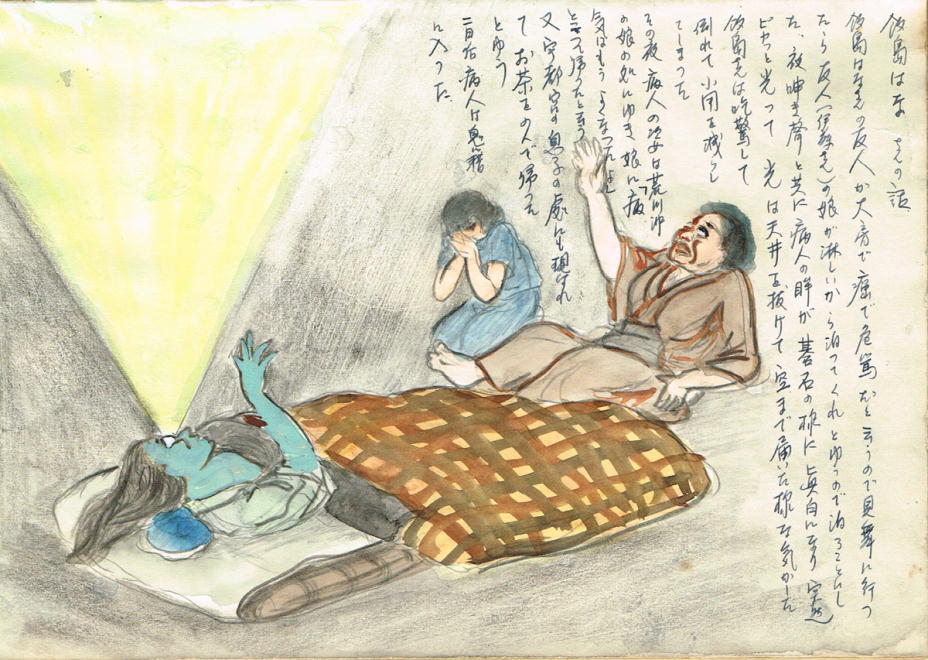 飯島はな さんの話
飯島はなさんの友人が大房で癌で危篤だと云うので見舞に行つ
たら友人(伊藤さん)の娘が淋しいから泊つてくれとゆうので泊ることにし
た、夜呻き声と共に病人の眸が碁石の様に真白になり 突然
ピカッと光って 光は天井を抜けて空まで届いた様な気がした
飯島さんは吃驚して
倒れて小間を減らし
てしまった
その夜病人の姿は荒川沖
の娘の処にゆき娘に「病
気はもうよくなったよ」
と云つて帰つたと云う
又宇都宮の息子の処にも現はれ
て お茶をのんで帰つた
とゆう
二日后病人は鬼籍
に入った